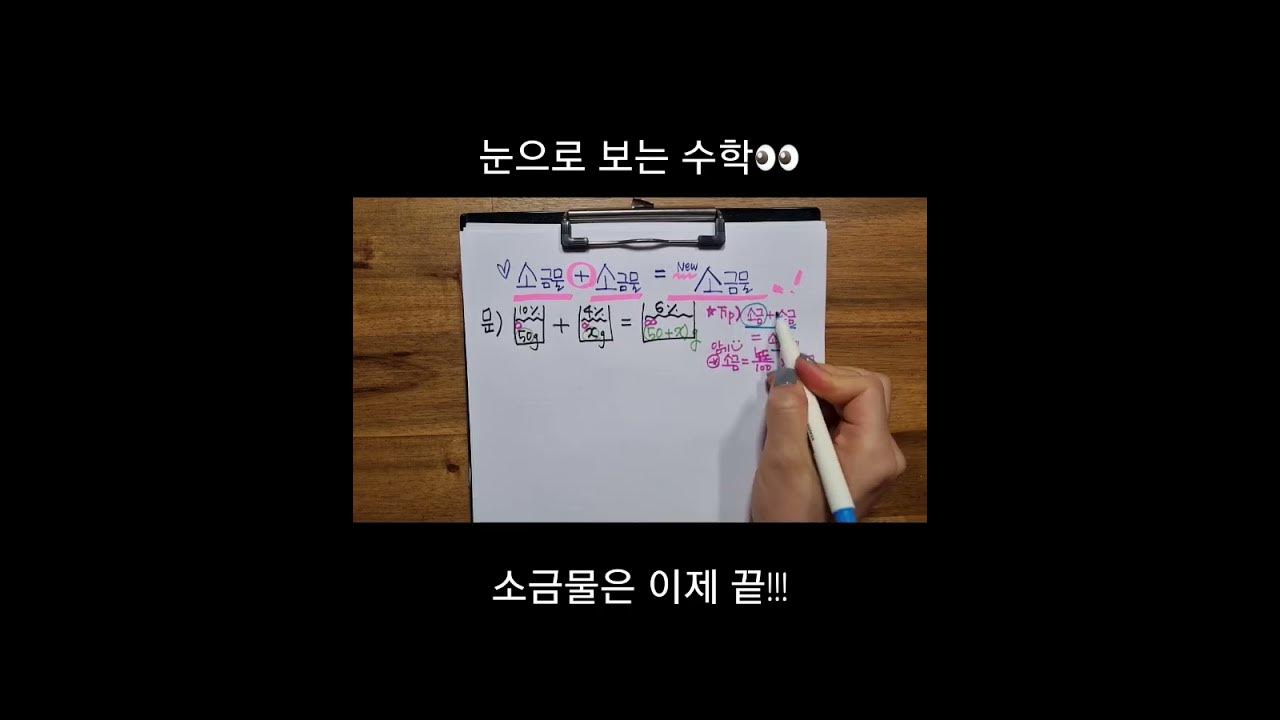 눈으로 보는 수학👀
♡ 소금물 + 소금물 = New 소금물 !
문) 10% 50g + 4% xg = 6% (50+x)g
★Tip) 소금+소금
=
암기☺
소금 = 농도/100
소금물은 이제 끝!!!